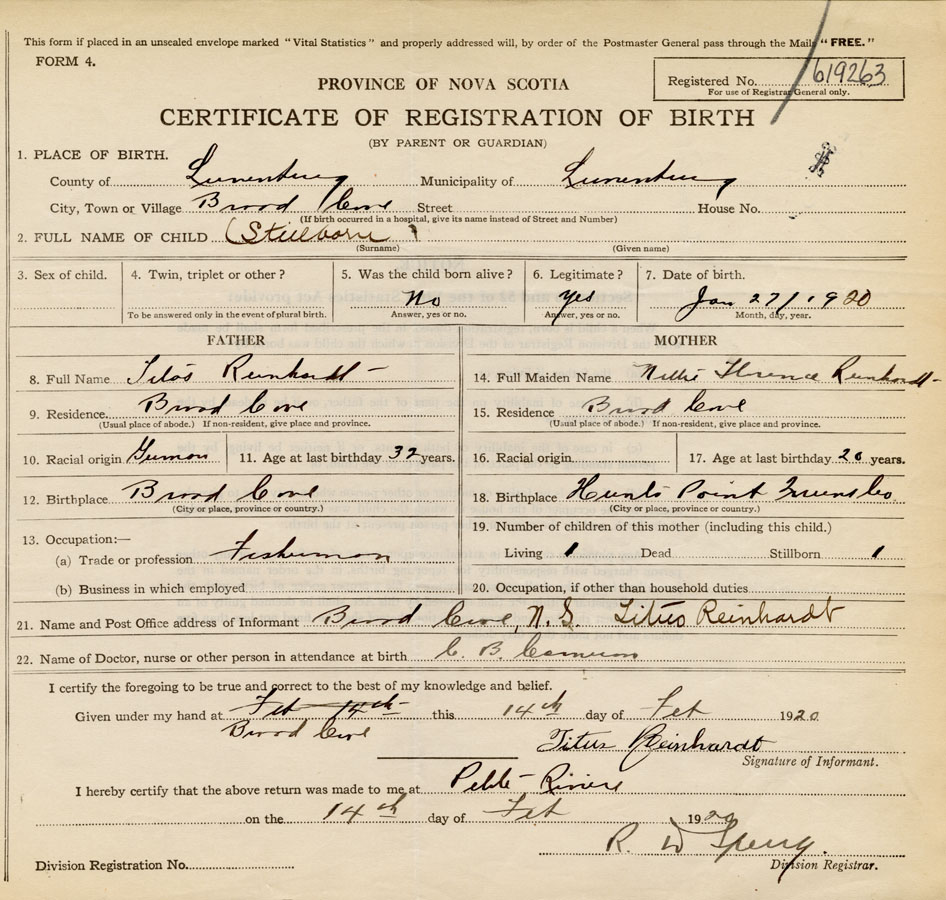 This form if placed in an unsealed envelope marked "Vital Statistics" and properly addressed will, by order of the Postmaster General pass through the Mails "FREE."
FORM 4.
Registered No. 619263
For use of Registrar General only.
PROVINCE OF NOVA SCOTIA
CERTIFICATE OF REGISTRATION OF BIRTH
(BY PARENT OR GUARDIAN)
1. PLACE OF BIRTH.
County of Lunenburg Municipality of Lunenburg
City, Town or Village Broad Cove Street House No.
(If birth occurred in a hospital, give its name instead of Street and Number)
2. FULL NAME OF CHILD (Stillborn)
(Surname) (Given name)
3. Sex of child. 4. Twin, triplet or other? 5. Was the child born alive? 6. Legitimate? 7. Date of birth.
No Yes Jan 27/1920
To be answered only in the event of plural birth. Answer, yes or no. Answer, yes or no. Month, day, year.
FATHER MOTHER
8. Full Name Titos Reinhardt 14. Full Maiden Name Nellie Florence Reinhardt
9. Residence. Broad Cove 15. Residence Broad Cove
(Usual place of abode.) If non-resident, give place and province. (Usual place of abode.) If non-resident, give place and province.
10. Racial origin German 11. Age at last birthday 32 years. 16. Racial origin 17. Age at last birthday 20 years.
12. Birthplace Broad Cove 18. Birthplace Hunts Point Queens Co
(City or place, province or country.) (City or place, province or country.)
19. Number of children of this mother (including this child.)
13. Occupation:—
(a) Trade or profession Fisherman Living 1 Dead Stillborn 1
(b) Business in which employed 20. Occupation, if other than household duties
21. Name and Post Office address of Informant Broad Cove, N.S. Titus Reinhardt
22. Name of Doctor, nurse or other person in attendance at birth C. B. Cameron
I certify the foregoing to be true and correct to the best of my knowledge and belief.
Given under my hand at Feb 14th this 14th day of Feb 1920
Broad Cove
Titus Reinhardt
Signature of Informant.
I hereby certify that the above return was made to me at Petite Riviere
on the 14th day of Feb 1920
R. W
Division Registration No. Division Registrar.